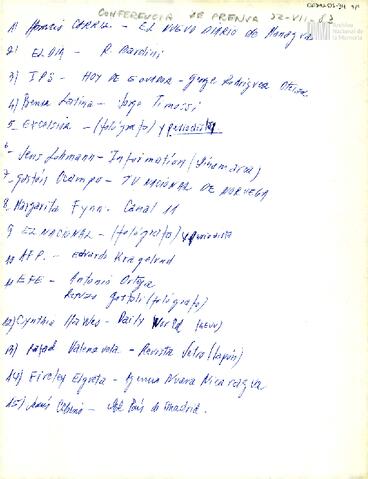 CONFERENCIA DE PRENSA 22-VII-83
Archivo
Nacional de
la Memoria
1) Horacio - EL NUEVO DIARIO de Managua
2) EL DIA - R. Bardini
3) IPS - HOY DE ECUADOR - Jorge Rodriguez
4) Prensa Latina - Jorge Timossi
5 EXCELSIOR - (fotógrafo) y periodista
6 Jens Lohmann - Information (Dinamarca)
7 Gastón Ocampo - TV NACIONAL DE NORUEGA
8 Margarita Fynn. Canal 11
9 EL NACIONAL - (fotógrafo) y periodista
10 AFP. - Eduardo Kragelund
11 EFE - Antonio Ortega
Renzo Gostoli (fotógrafo)
12) Cynthia Hawes - Daily World (EEUU)
13) Rafael Valenzuela - Revista (Japón)
14) Elgueta - Agencia Nueva Nicaragua
15) Jesús - del País de Madrid.